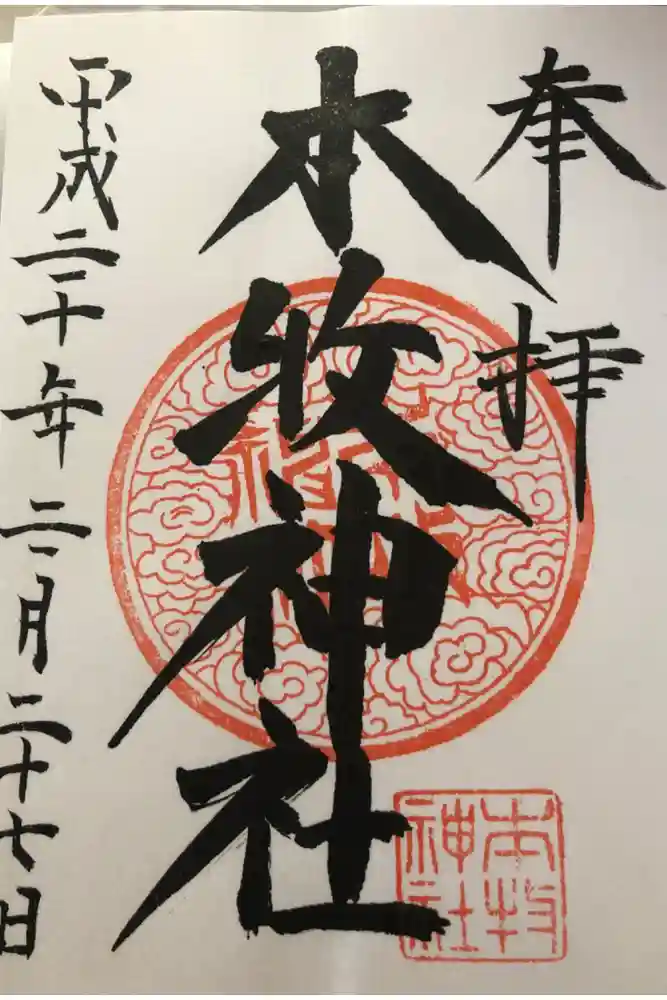 奉拝
本牧神社
平成三十年二月二十七日
本牧
神社